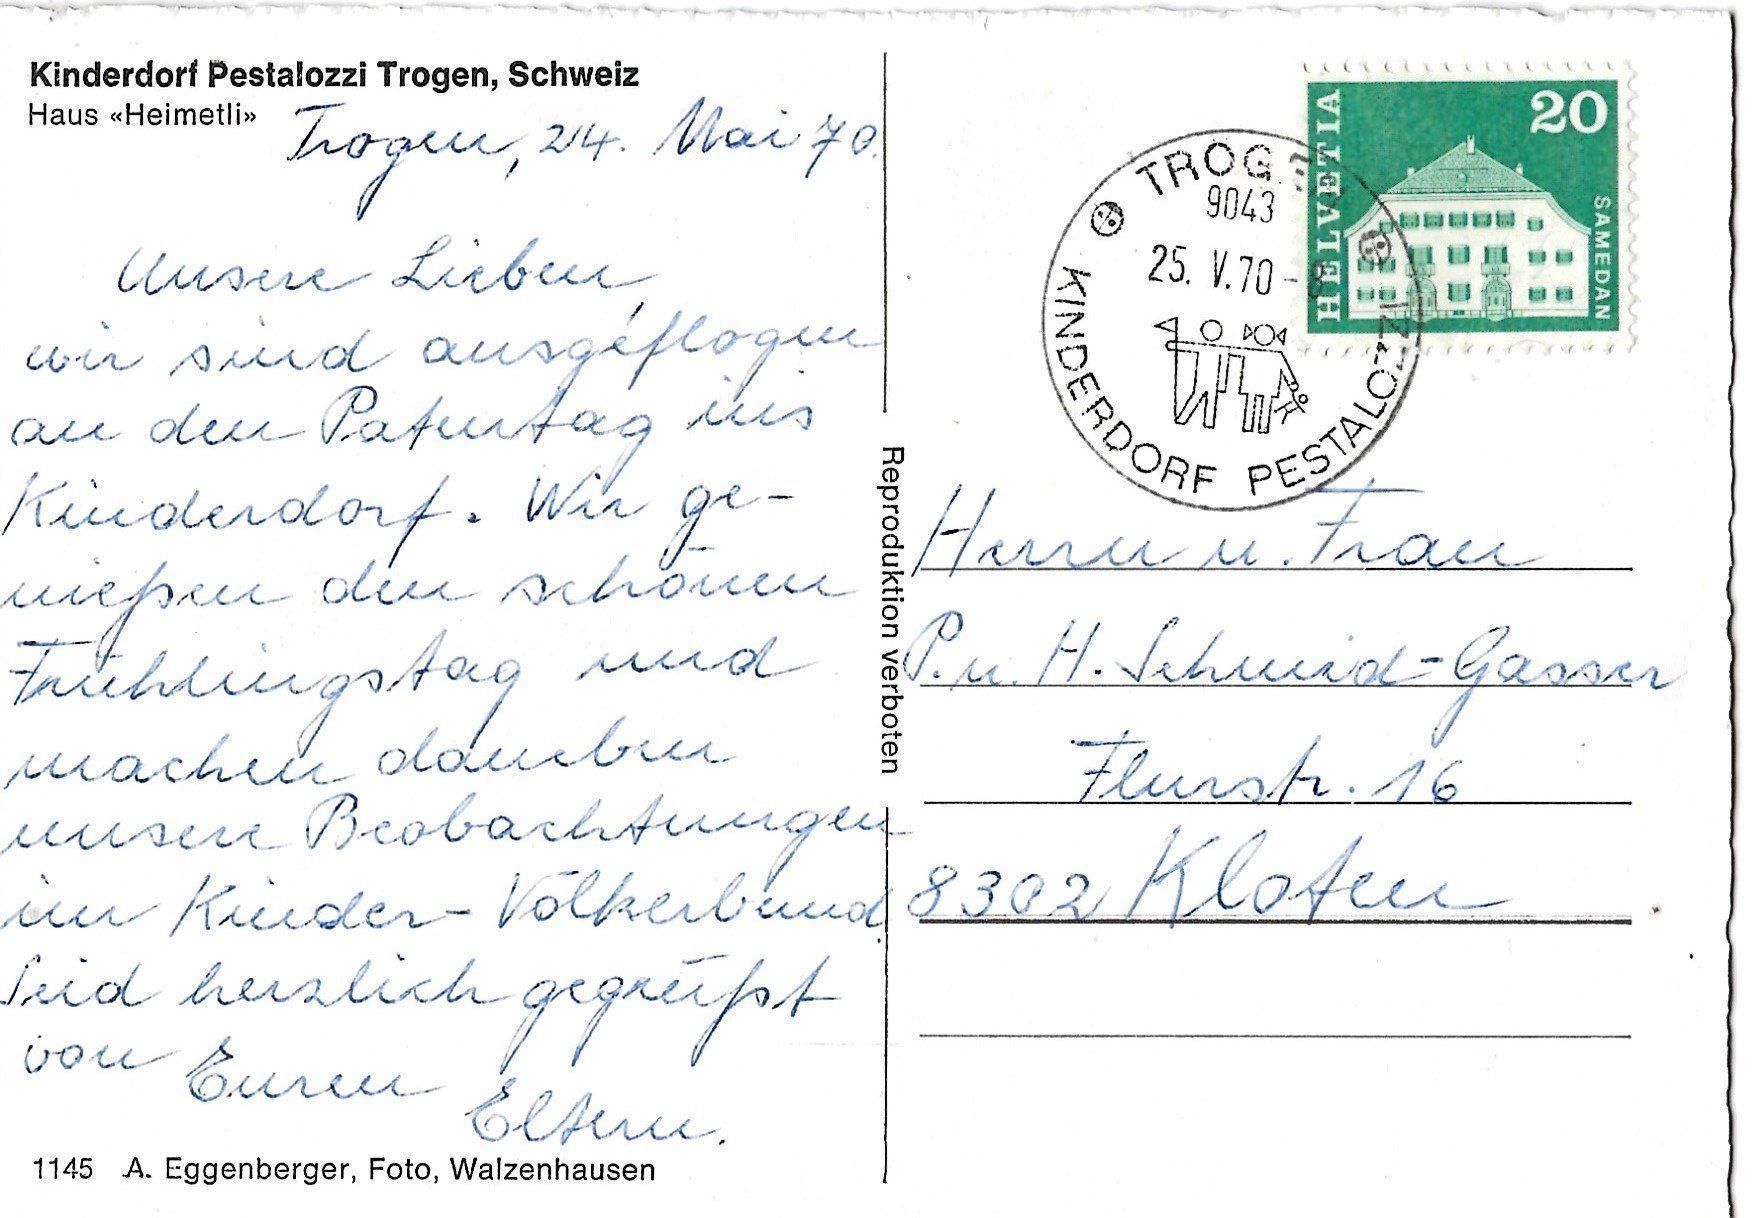 Kinderdorf Pestalozzi Trogen, Schweiz
Haus «Heimetli»
Trogen, 24. Mai 70.
Unsere Lieben,
wir sind ausgeflogen
an den Patentag ins
Kinderdorf. Wir ge-
nießen den schönen
Frühlingstag und
machen daneben
unsere Beobachtungen
im Kinder-Völkerbund.
Seid herzlich gegrüßt
von Euren
Eltern.
1145 A. Eggenberger, Foto, Walzenhausen
Reproduktion verboten
TROG
9043
25. V. 70 - 8
KINDERDORF PESTALOZZI
HELVETIA
20
SAMEDAN
Herrn u. Frau
P. u. H. Schmid-Gasser
Flurstr. 16
8302 Kloten